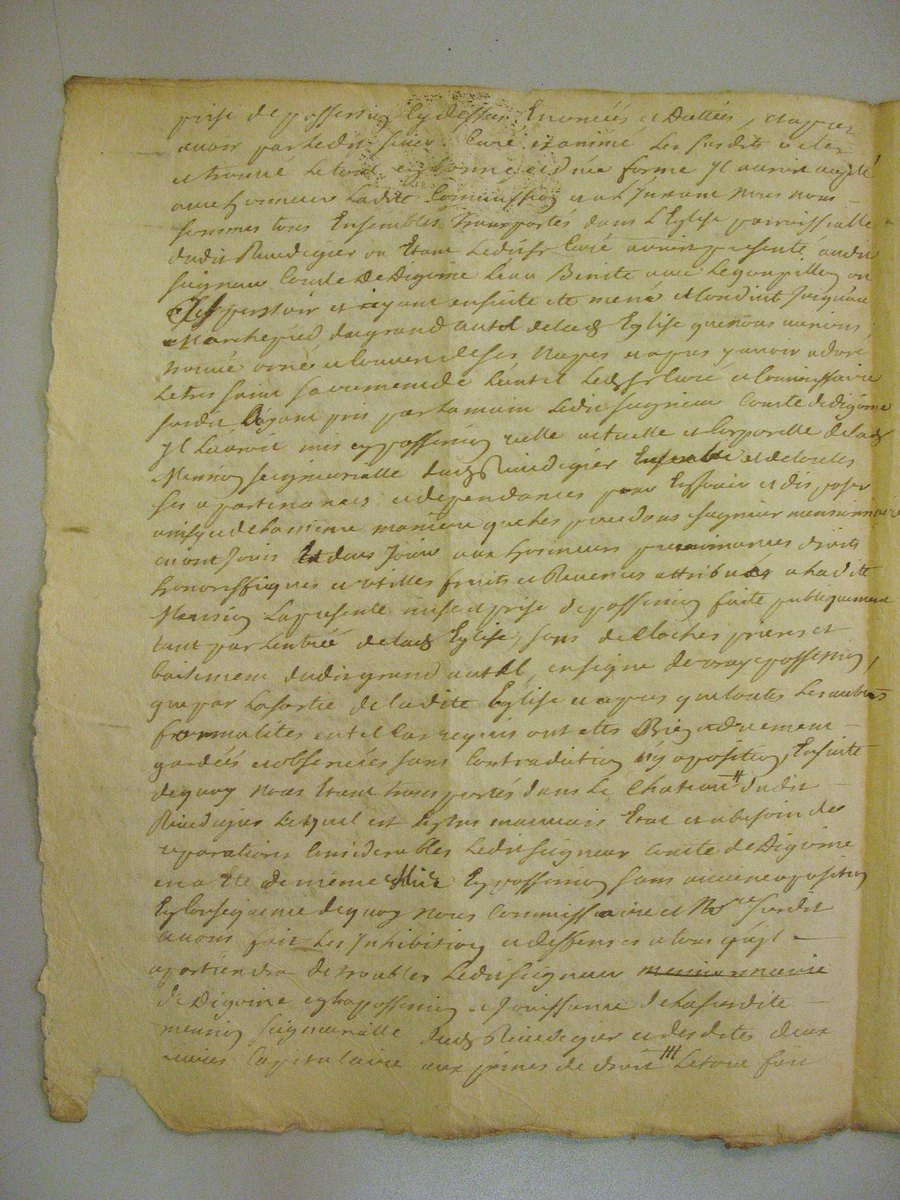 prise de possession cy dessus Enoncées et Dattées, et apres
avoir par ledit sieur Curé examiné les susdits actes
et trouvé le tout en bonne et düe forme Il auroit accepté
avec honneur ladite Commission et a l'Instant nous nous
sommes tous Ensembles transportés dans l'Eglise parroissialle
dudit Pleindigier ou Etant ledit sr Curé auroit presenté audit
seigneur Comte de Digoine l'eau Benite avec le goupillon ou
aspersoir et ayant ensuite eté mené et Conduit Jusqu'au
Marchepied du grand autel de lade Eglise que nous aurions
trouvé orné et Couvert de ses Napes et apres y avoir adoré
le tres saint sacrement de l'autel ledt sr Curé et Commissaire
susdit L'ayant pris par la main ledit seigneur Comte de Digoine
Il l'auroit mis en possession reelle actuelle et Corporelle de lade
Mension seigneurialle dudt et de toutes
ses apartenances et dependances pour En Jouir et disposer
ainsy et de la même maniere que les precedans seigneur mensionnaire
en ont Jouis Et dus Jouir aux honneurs preeminances droits
honoriffiques et utilles fruits et Revenus attribués a ladite
Mension la presente mise et prise de possession faite publiquement
tant par l'entrée de lade Eglise, sons de Cloches prieres et
baisement dudit grand autel, en signe de vraye possession,
que par la sortie de ladite Eglise et apres que toutes les autres
formalités en tel Cas requis ont etés Bien et düement
gardées et observées sans Contradiction ny oposition, Ensuite
de quoy nous Etant transportés dans le Chateau # dudit
lequel est En tres mauvais Etat et a besoin de
reparations Considerables ledit seigneur Comte de Digoine
en a eté de même Mis En possession sans aucune oposition
En Consequence de quoy nous Commissaire et Nore susdit
avons fait les Inhibition et deffenses a tous qu'il
apartiendra de troubler ledit seigneur
de Digoine en sa possession et Jouissance de la susdite
mension seigneurialle dudt et desdites deux
Capitulaire aux peines de droit ### le tout fait